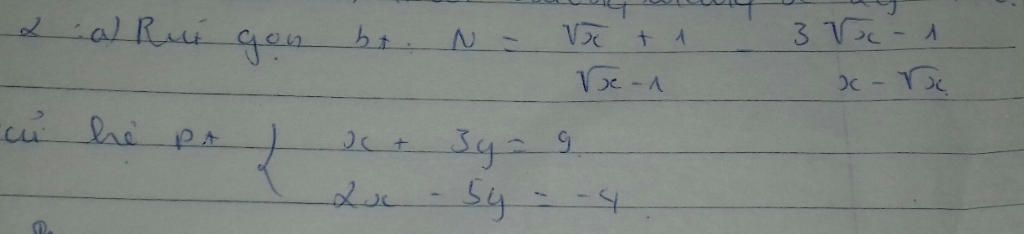 2 : a) Rút gọn bt. N = (√x + 1)/(√x - 1) - (3√x - 1)/(x - √x)
hệ pt { x + 3y = 9
2x - 5y = -4